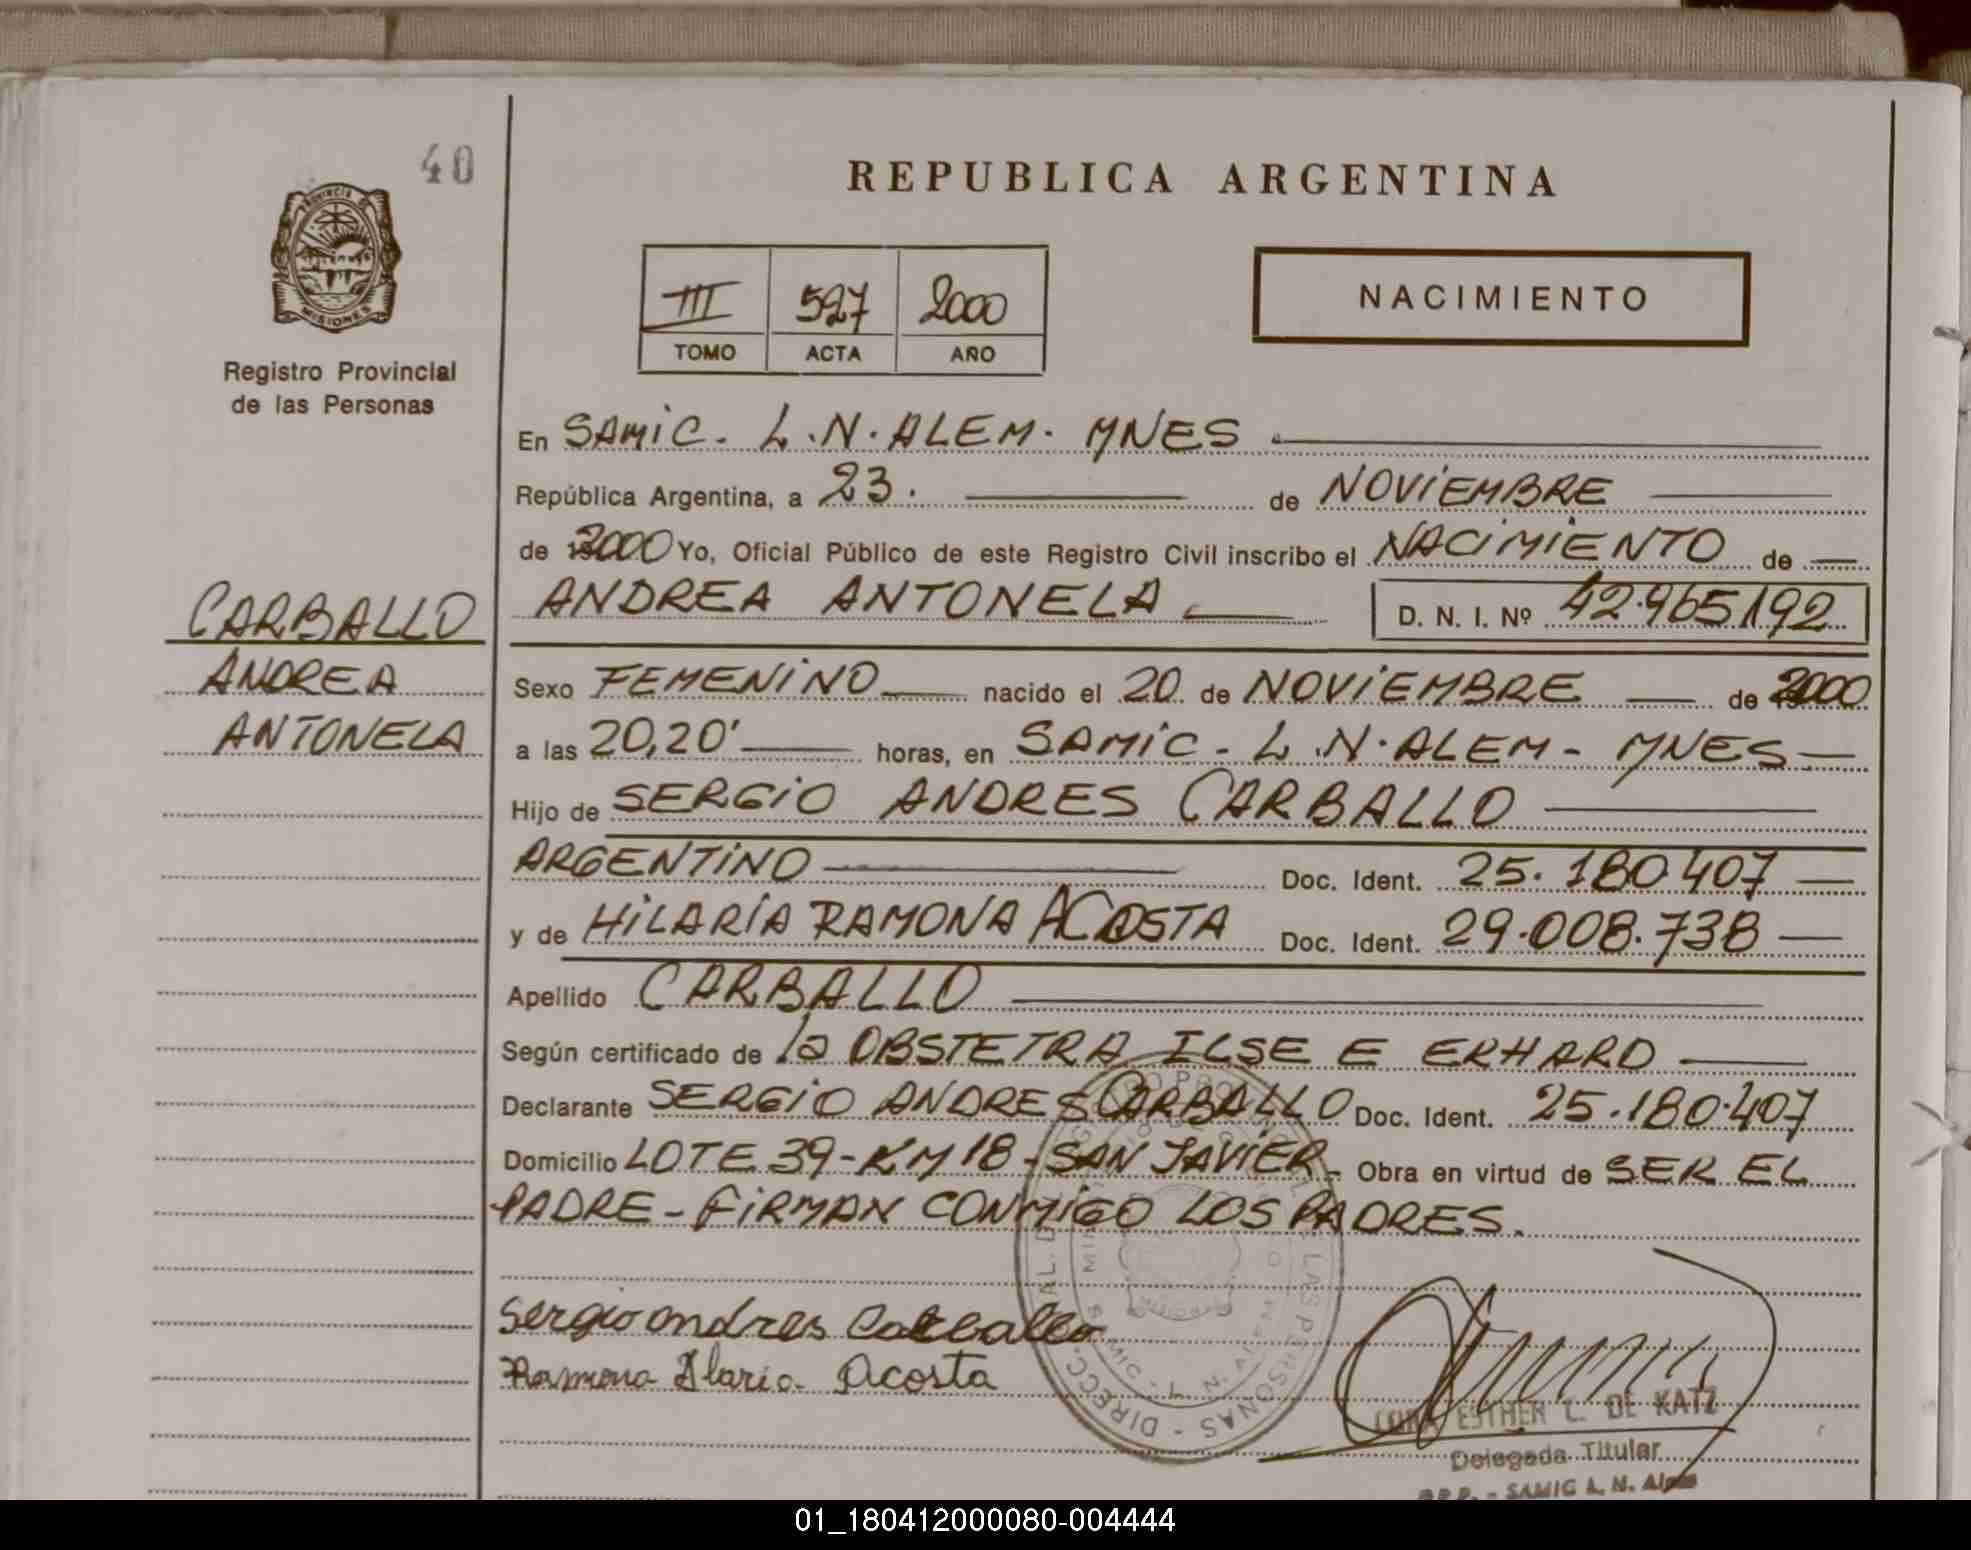 40
REPUBLICA ARGENTINA
PROVINCIA DE
MISIONES
Registro Provincial
de las Personas
III 527 2000
TOMO ACTA AÑO
NACIMIENTO
En SAMIC. L.N. ALEM. MNES
República Argentina, a 23. de NOVIEMBRE
de 2000 Yo, Oficial Público de este Registro Civil inscribo el NACIMIENTO de
CARBALLO
ANDREA
ANTONELA
ANDREA ANTONELA D. N. I. Nº 42.965.192
Sexo FEMENINO nacido el 20 de NOVIEMBRE de 2000
a las 20,20' horas, en SAMIC - L.N. ALEM - MNES
Hijo de SERGIO ANDRES CARBALLO
ARGENTINO Doc. Ident. 25.180.407
y de HILARIA RAMONA ACOSTA Doc. Ident. 29.008.738
Apellido CARBALLO
Según certificado de la OBSTETRA ILSE E ERHARD
Declarante SERGIO ANDRES CARBALLO Doc. Ident. 25.180.407
Domicilio LOTE 39-KM 18 - SAN JAVIER - Obra en virtud de SER EL
PADRE - FIRMAN CONMIGO LOS PADRES.
Sergio andres Carballo
Ramona Ilaria Acosta
ESTHER L. DE KATZ
Delegada Titular
R.P.P. - SAMIC L. N. Alem
01_180412000080-004444